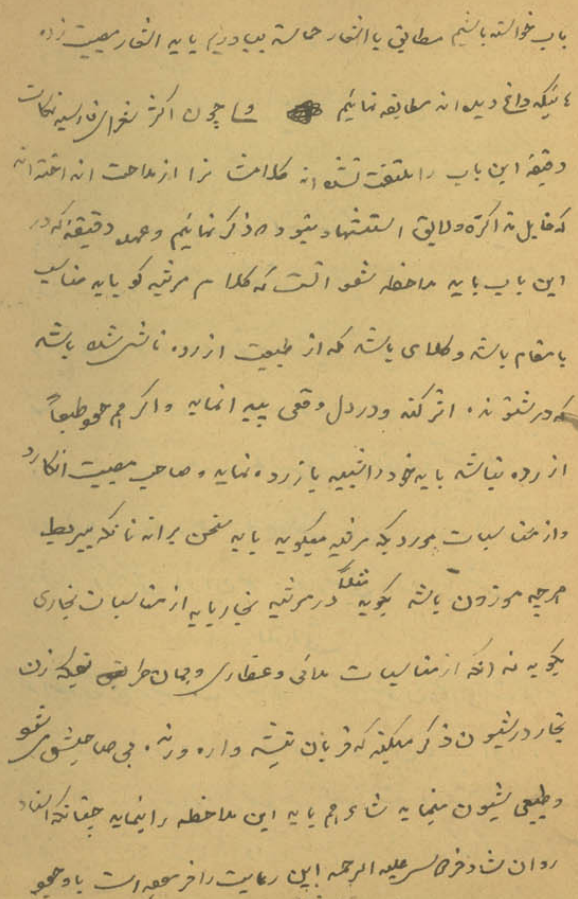 باب خواسته باشیم مطابق با اشعار حماسه بیاوریم باید اشعار مصیبت زده
داغ دیده مطابقه نمائیم و چون اکثر شعرای فارسیه نکات
دقیقهٔ این باب را ملتفت نشده اند کلامشان را از ملاحت انداخته اند
که قابل مذاکره و لایق استشهاد نبوده ذکر نمائیم و عمده دقیقه که در
این باب باید ملاحظه شود آنست که کلام مرثیه گو باید مناسب
با مقام باشد و کلامی باشد که از طبیعت آزرده ناشی شده باشد
که در شنونده اثر کند و در دل وقعی پیدا نماید و اگر هم خود طبعاً
آزرده نباشد باید خود را شبیه بآزرده نماید و صاحب مصیبت انگارد
و از مناسبات موردیکه مرثیه میگوید باید سخن براند نه آنکه بیربط
هرچه موزون باشد بگوید مثلاً در مرثیه نجار باید از مناسبات نجاری
بگوید نه آنکه از مناسبات ملائی و عطاری و همان طریق که زن
نجار در شیون ذکر میکند که قربان تیشه و اره و رنده بی صاحبش شوم
و طبیعی شیون مینماید شاعر هم باید این ملاحظه را بنماید چنانکه استاد
روان شاد فردوسی علیه الرحمه این رعایت را فرموده است با وجود